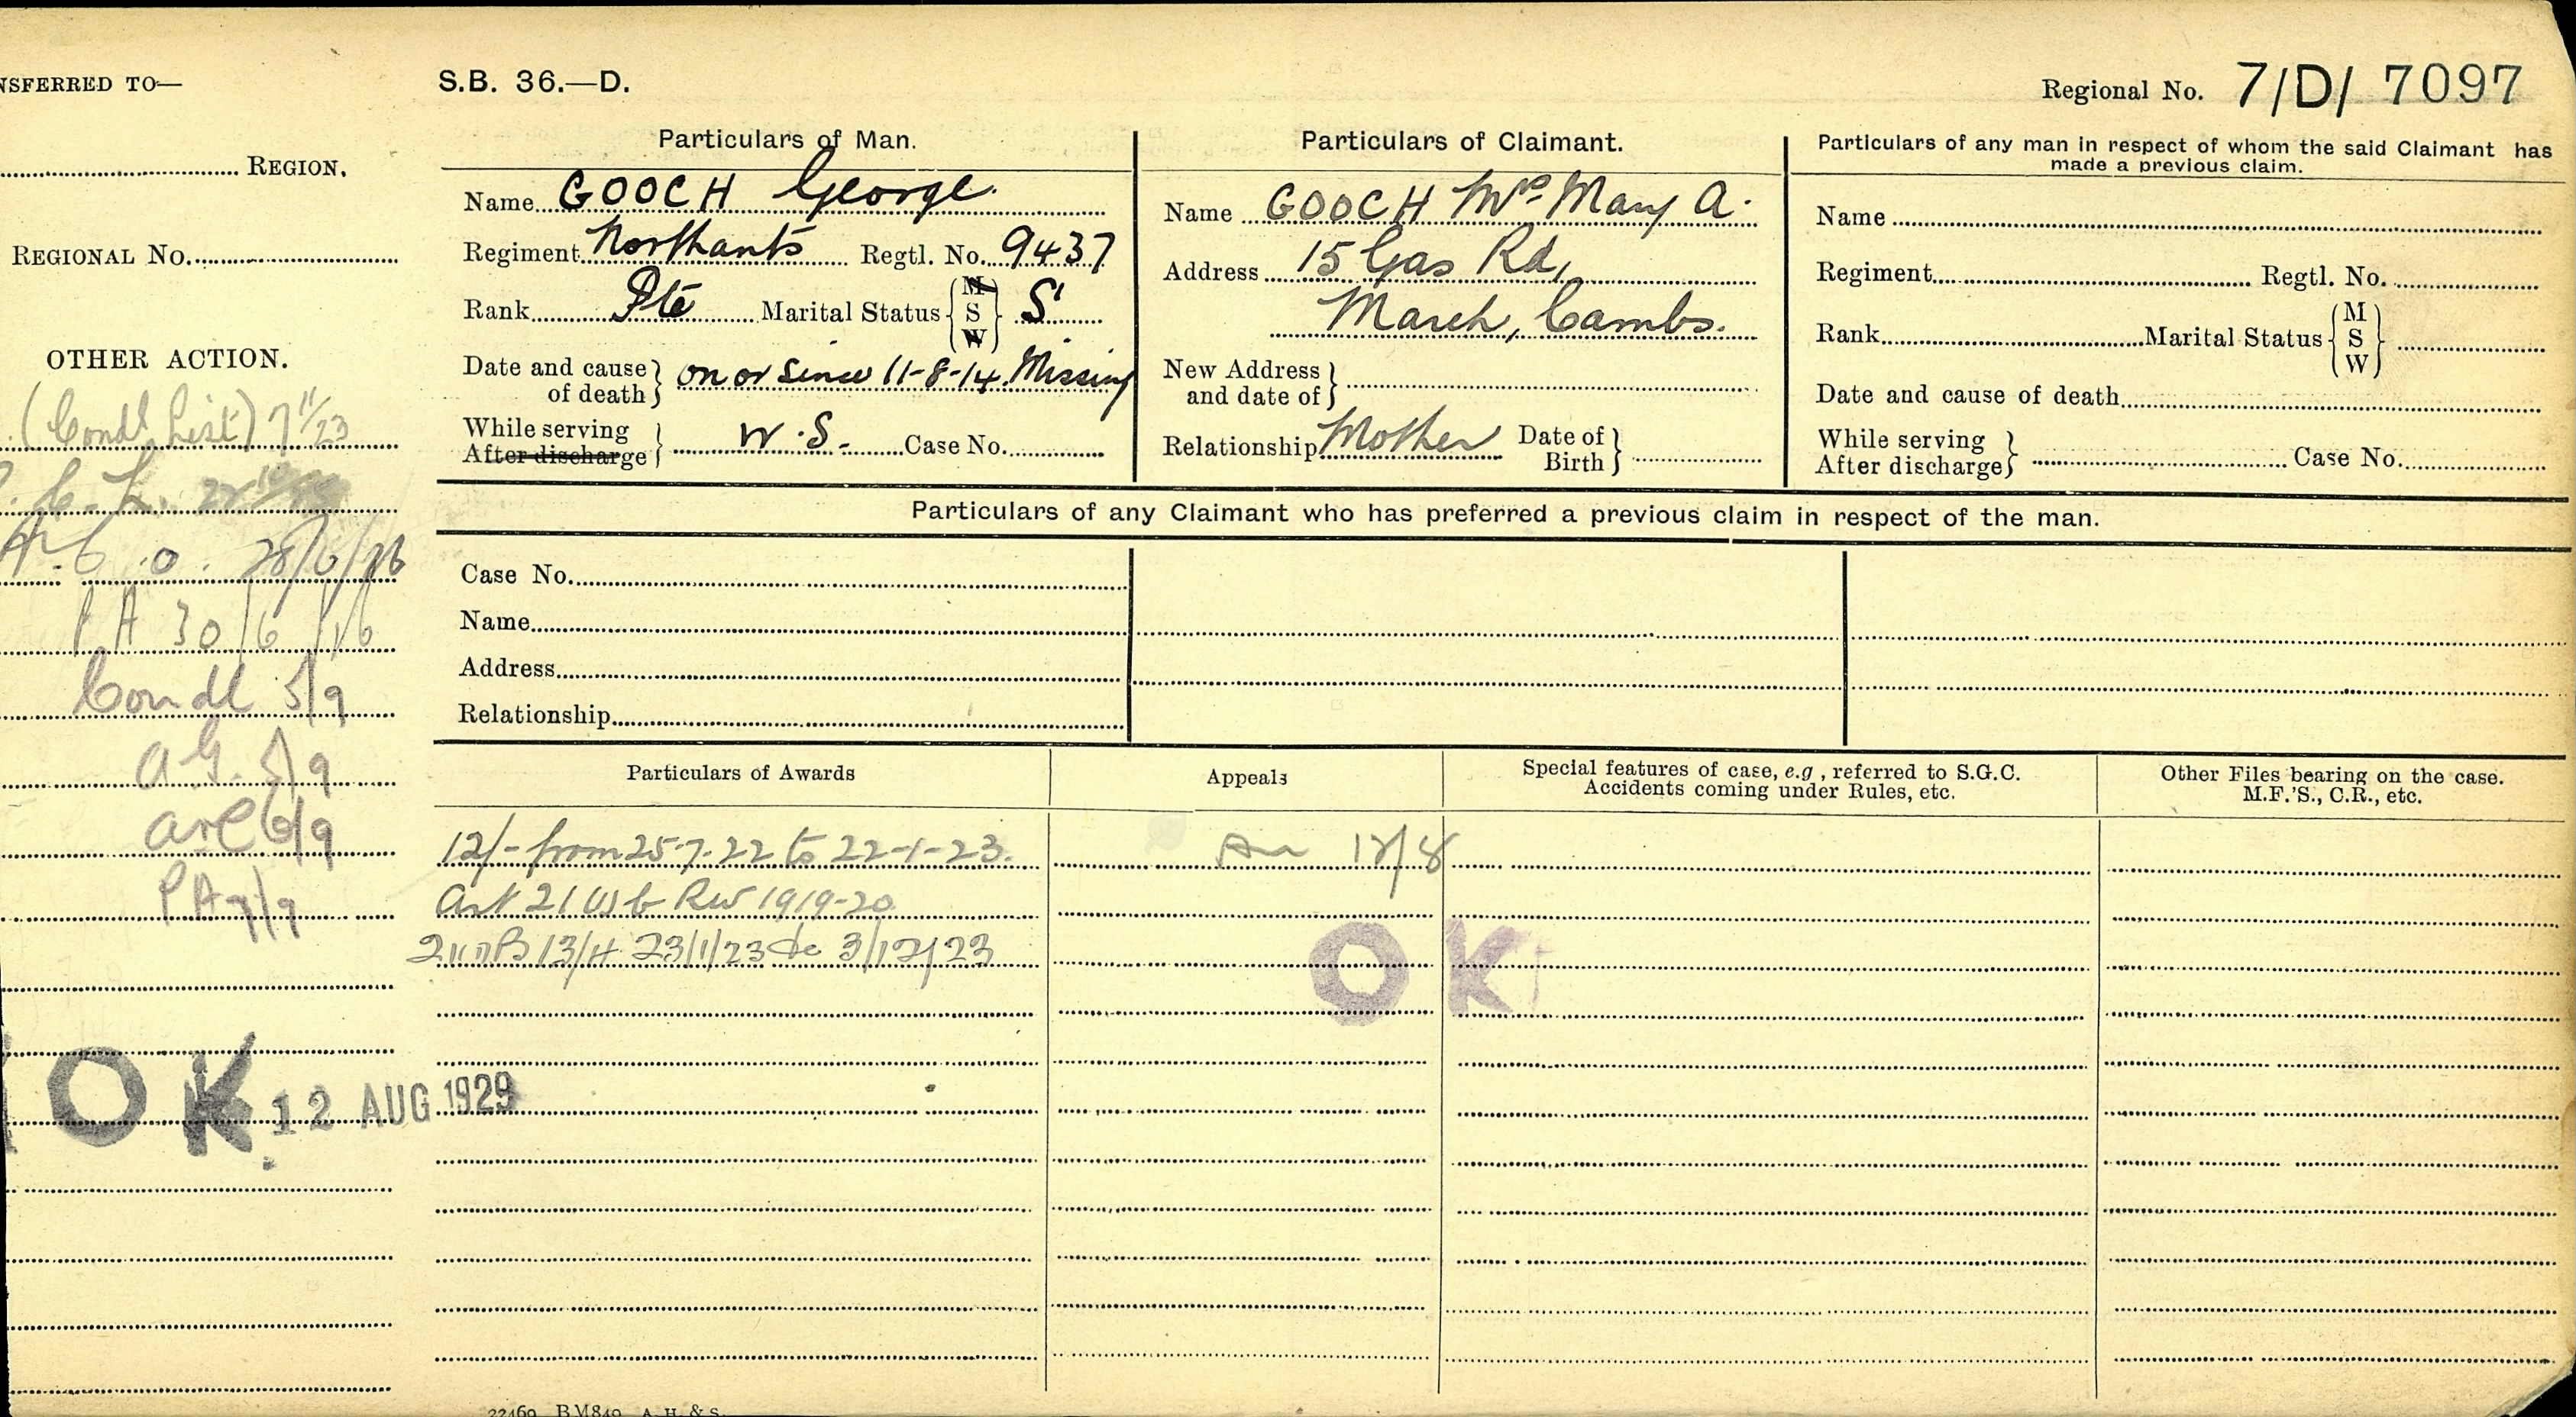 NSFERRED TO—
REGION.
REGIONAL No.
OTHER ACTION.
(Condl List) 7 11/23
28/6/26
PA 30/6/26
Condl 5/9
AG. 5/9
6/9
PA 7/9
OK 12 AUG 1929
S.B. 36.—D.
Regional No. 7/D/ 7097
Particulars of Man.
Name GOOCH George.
Regiment Northants Regtl. No. 9437
Rank Pte Marital Status M S W S
Date and cause of death on or since 11-8-14. Missing
While serving
After discharge W.S. Case No.
Particulars of Claimant.
Name GOOCH Mrs Mary A.
Address 15 Gas Rd,
March, Cambs.
New Address
and date of
Relationship Mother Date of Birth
Particulars of any man in respect of whom the said Claimant has
made a previous claim.
Name
Regiment Regtl. No.
Rank Marital Status M S W
Date and cause of death
While serving
After discharge Case No.
Particulars of any Claimant who has preferred a previous claim in respect of the man.
Case No.
Name
Address
Relationship
Particulars of Awards
12/- from 25.7.22 to 22-1-23.
Art 21 RW 1919-20
13/4 23/1/23 to 3/12/23
Appeals
12/8
OK
Special features of case, e.g., referred to S.G.C.
Accidents coming under Rules, etc.
Other Files bearing on the case.
M.F.'S., C.R., etc.
22469 BM849 A. H. & S.